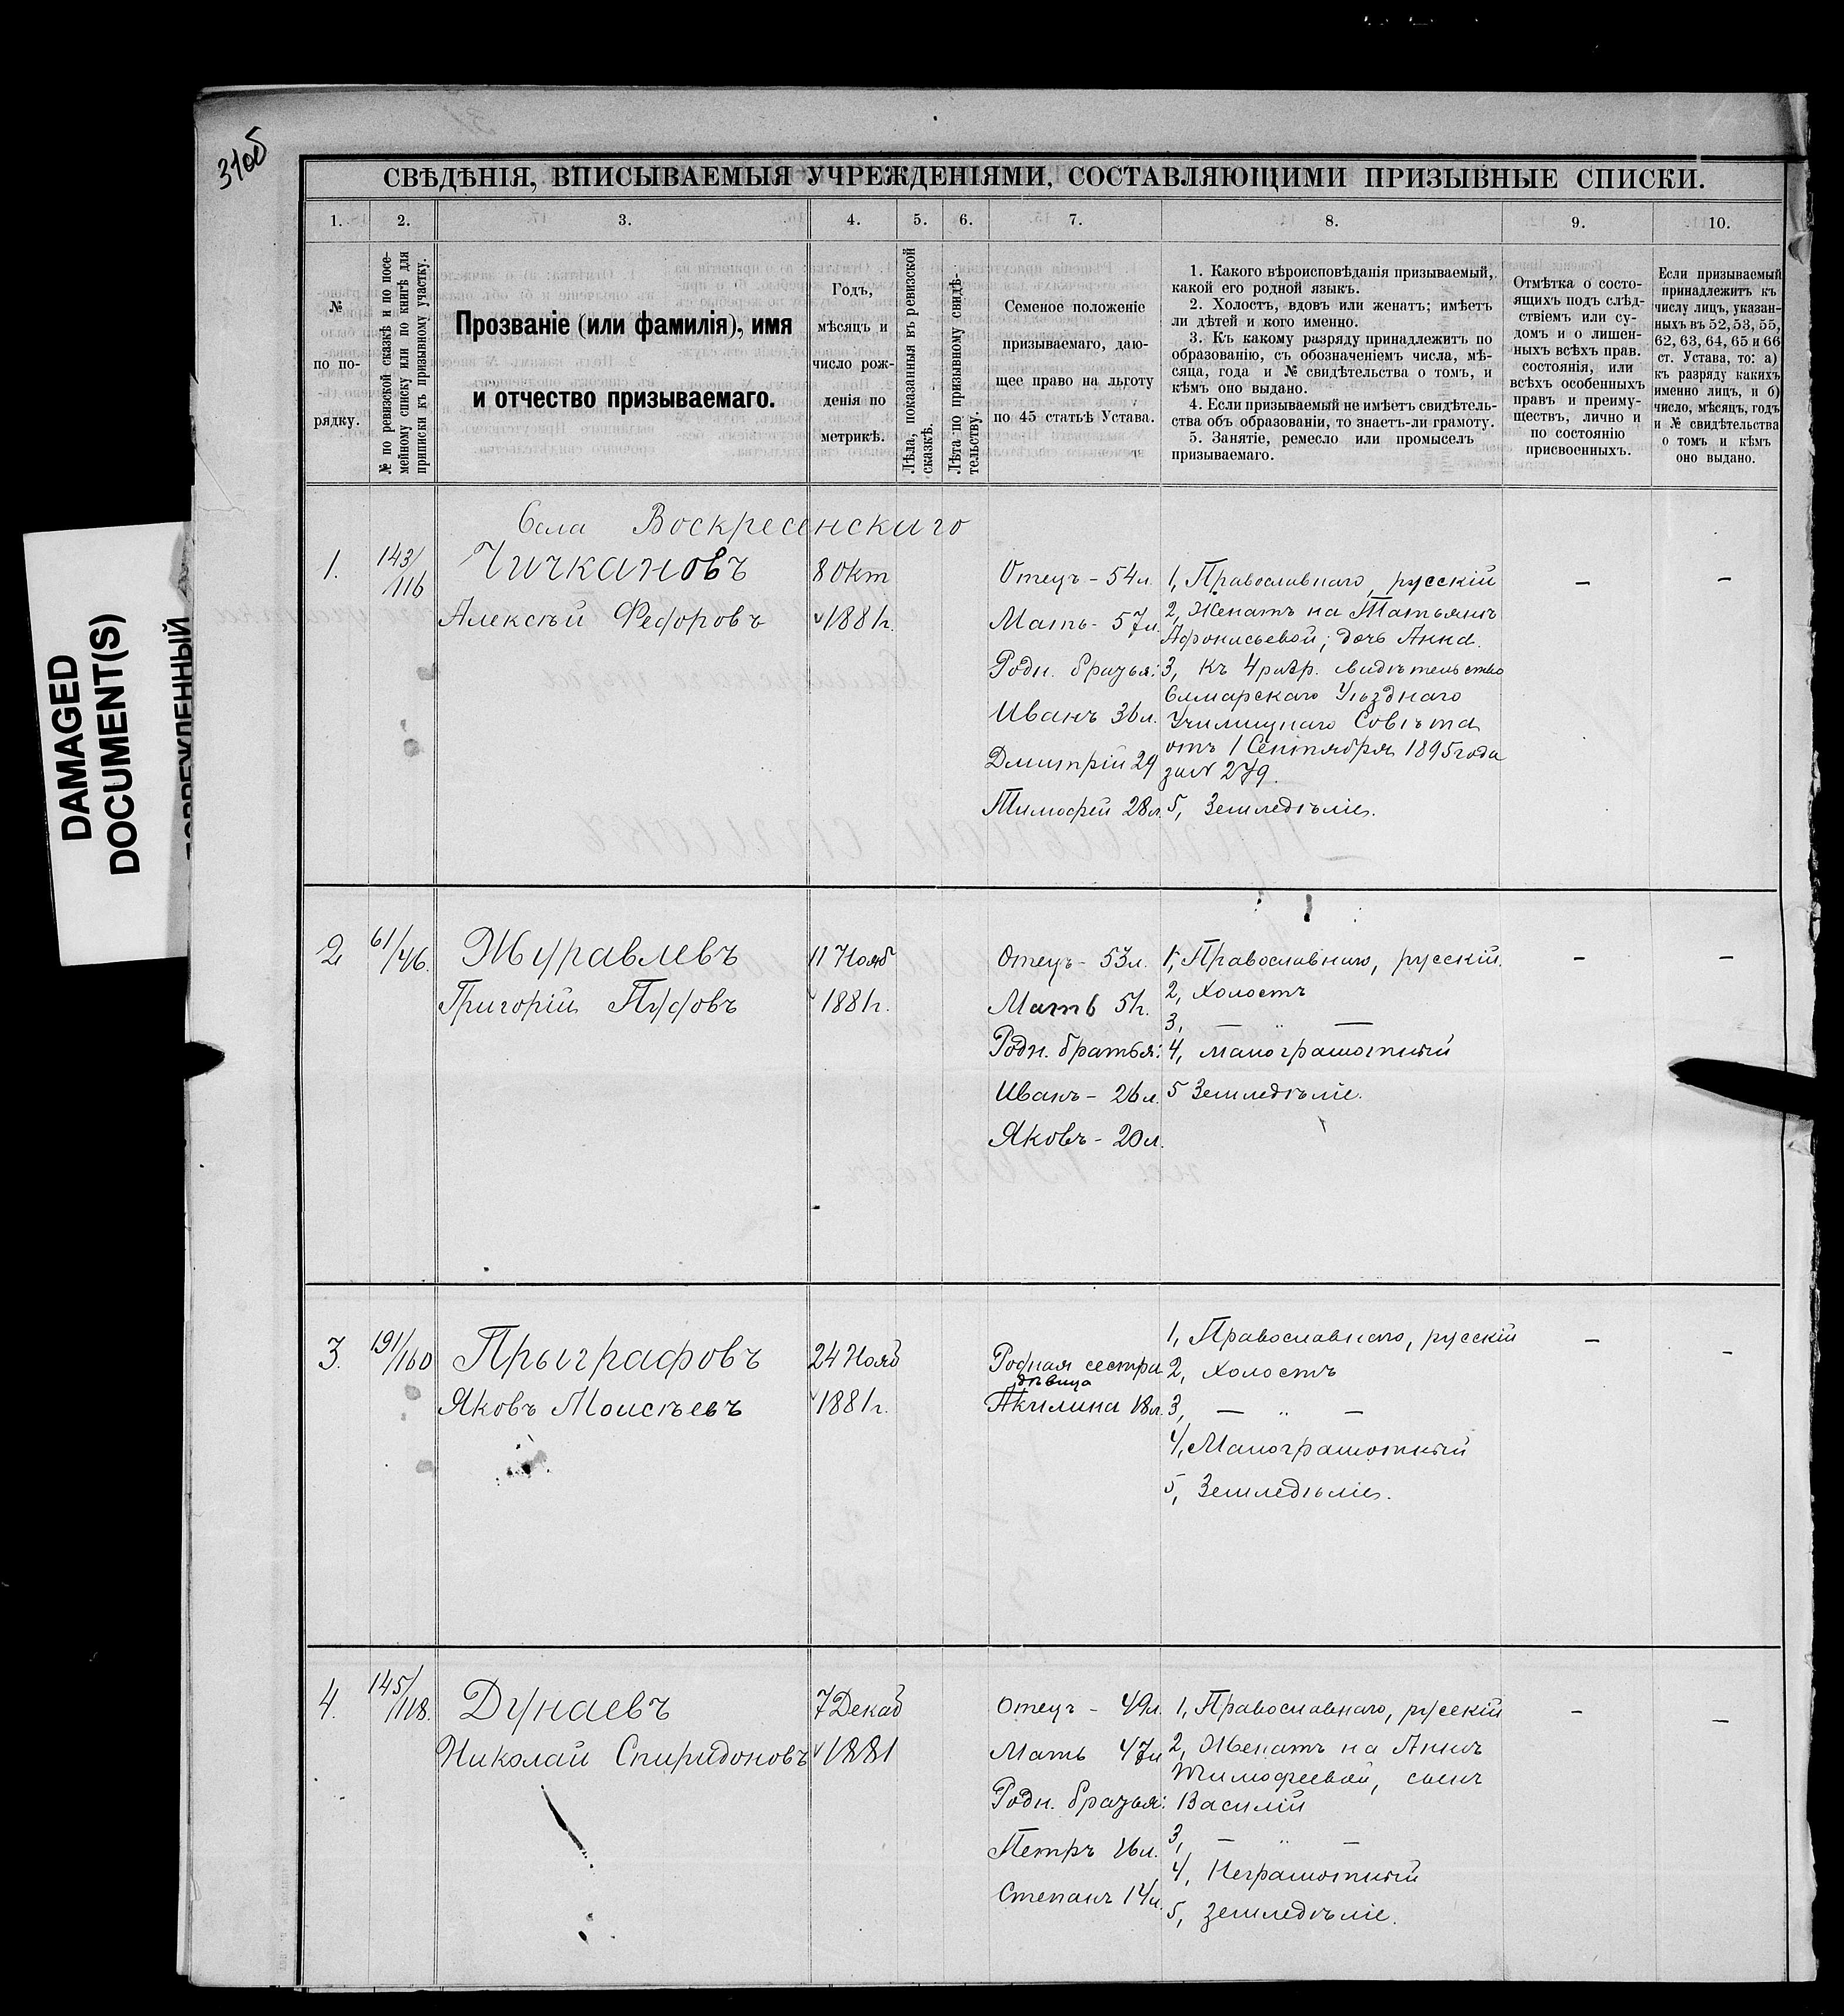 31об
СВѢДѢНІЯ, ВПИСЫВАЕМЫЯ УЧРЕЖДЕНІЯМИ, СОСТАВЛЯЮЩИМИ ПРИЗЫВНЫЕ СПИСКИ.
1. 2. 3. 4. 5. 6. 7. 8. 9. 10.
№
по по-
рядку.
№ по ревизской сказкѣ и по посе-
мейному списку или по книгѣ для
приписки къ призывному участку.
Прозваніе (или фамилія), имя
и отчество призываемаго.
Годъ,
мѣсяцъ и
число рож-
денія по
метрикѣ.
Лѣта, показанныя въ ревизской
сказкѣ.
Лѣта по призывному свидѣ-
тельству.
Семеное положеніе
призываемаго, даю-
щее право на льготу
по 45 статьѣ Устава.
1. Какого вѣроисповѣданія призываемый,
какой его родной языкъ.
2. Холостъ, вдовъ или женатъ; имѣетъ
ли дѣтей и кого именно.
3. Къ какому разряду принадлежитъ по
образованію, съ обозначеніемъ числа, мѣ-
сяца, года и № свидѣтельства о томъ, и
кѣмъ оно выдано.
4. Если призываемый не имѣетъ свидѣтель-
ства объ образованіи, то знаетъ-ли грамоту.
5. Занятіе, ремесло или промыселъ
призываемаго.
Отмѣтка о состо-
ящихъ подъ слѣд-
ствіемъ или су-
домъ и о лишен-
ныхъ всѣхъ прав.
состоянія, или
всѣхъ особенныхъ
правъ и преиму-
ществъ, лично и
по состоянію
присвоенныхъ.
Если призываемый
принадлежитъ къ
числу лицъ, указан-
ныхъ въ 52, 53, 55,
62, 63, 64, 65 и 66
ст. Устава, то: а)
къ разряду какихъ
именно лицъ, и б)
число, мѣсяцъ, годъ
и № свидѣтельства
о томъ и кѣмъ
оно выдано.
Села Воскресенскиго
1.
143/116
Чичкановъ
Алексѣй Федоровъ
8 Окт
1881г.
Отецъ - 54л.
Мать - 57л.
Родн. братья:
Иванъ 36л.
Дмитрій 29
Тимофей 28л.
1, Православнаго, русскій
2, Женатъ на Татьянѣ
Афонасьевой; дочь Анна.
3, Къ 4 разр. свидѣтельство
Самарскаго Уѣзднаго
Училищнаго Совѣта
отъ 1 Сентября 1895 года
за № 279.
5, Земледѣліе.
–
–
2
61/46.
Журавлевъ
Григорій Пудовъ
11 Нояб
1881г.
Отецъ - 53л.
Мать 51г.
Родн. братья:
Иванъ - 26л.
Яковъ - 20л.
1, Православнаго, русскій.
2, Холостъ
3, — „ —
4, малограмотный
5 Земледѣліе.
–
–
3.
191/160
Прыграфовъ
Яковъ Моисѣевъ
24 Нояб
1881г.
Родная сестра
дѣвица
Акилина 18л.
1, Православнаго, русскій
2, Холостъ
3, — „ —
4, Малограмотный
5, Земледѣліе.
–
–
4.
145/118.
Дунаевъ
Николай Спиридоновъ
7 Декаб
1881
Отецъ - 49л.
Мать 47л
Родн. братья:
Петръ 16л.
Степанъ 14л.
1, Православнаго, русскій
2, Женатъ на Аннѣ
Тимофеевой, сынъ
Василій
3, — „ —
4, Неграмотный
5, Земледѣліе.
–
–
DAMAGED
DOCUMENT(S)